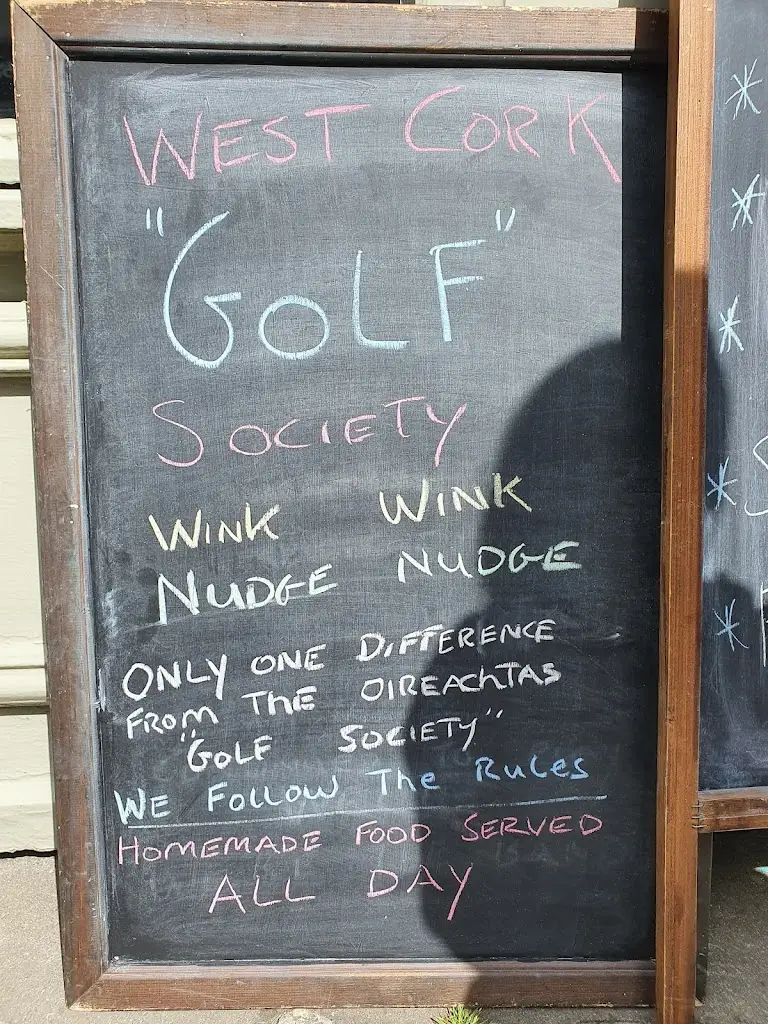 WEST CORK
"GOLF"
SOCIETY
WINK WINK
NUDGE NUDGE
ONLY ONE DIFFERENCE
FROM THE OIREACHTAS
"GOLF SOCIETY"
WE FOLLOW THE RULES
HOMEMADE FOOD SERVED
ALL DAY